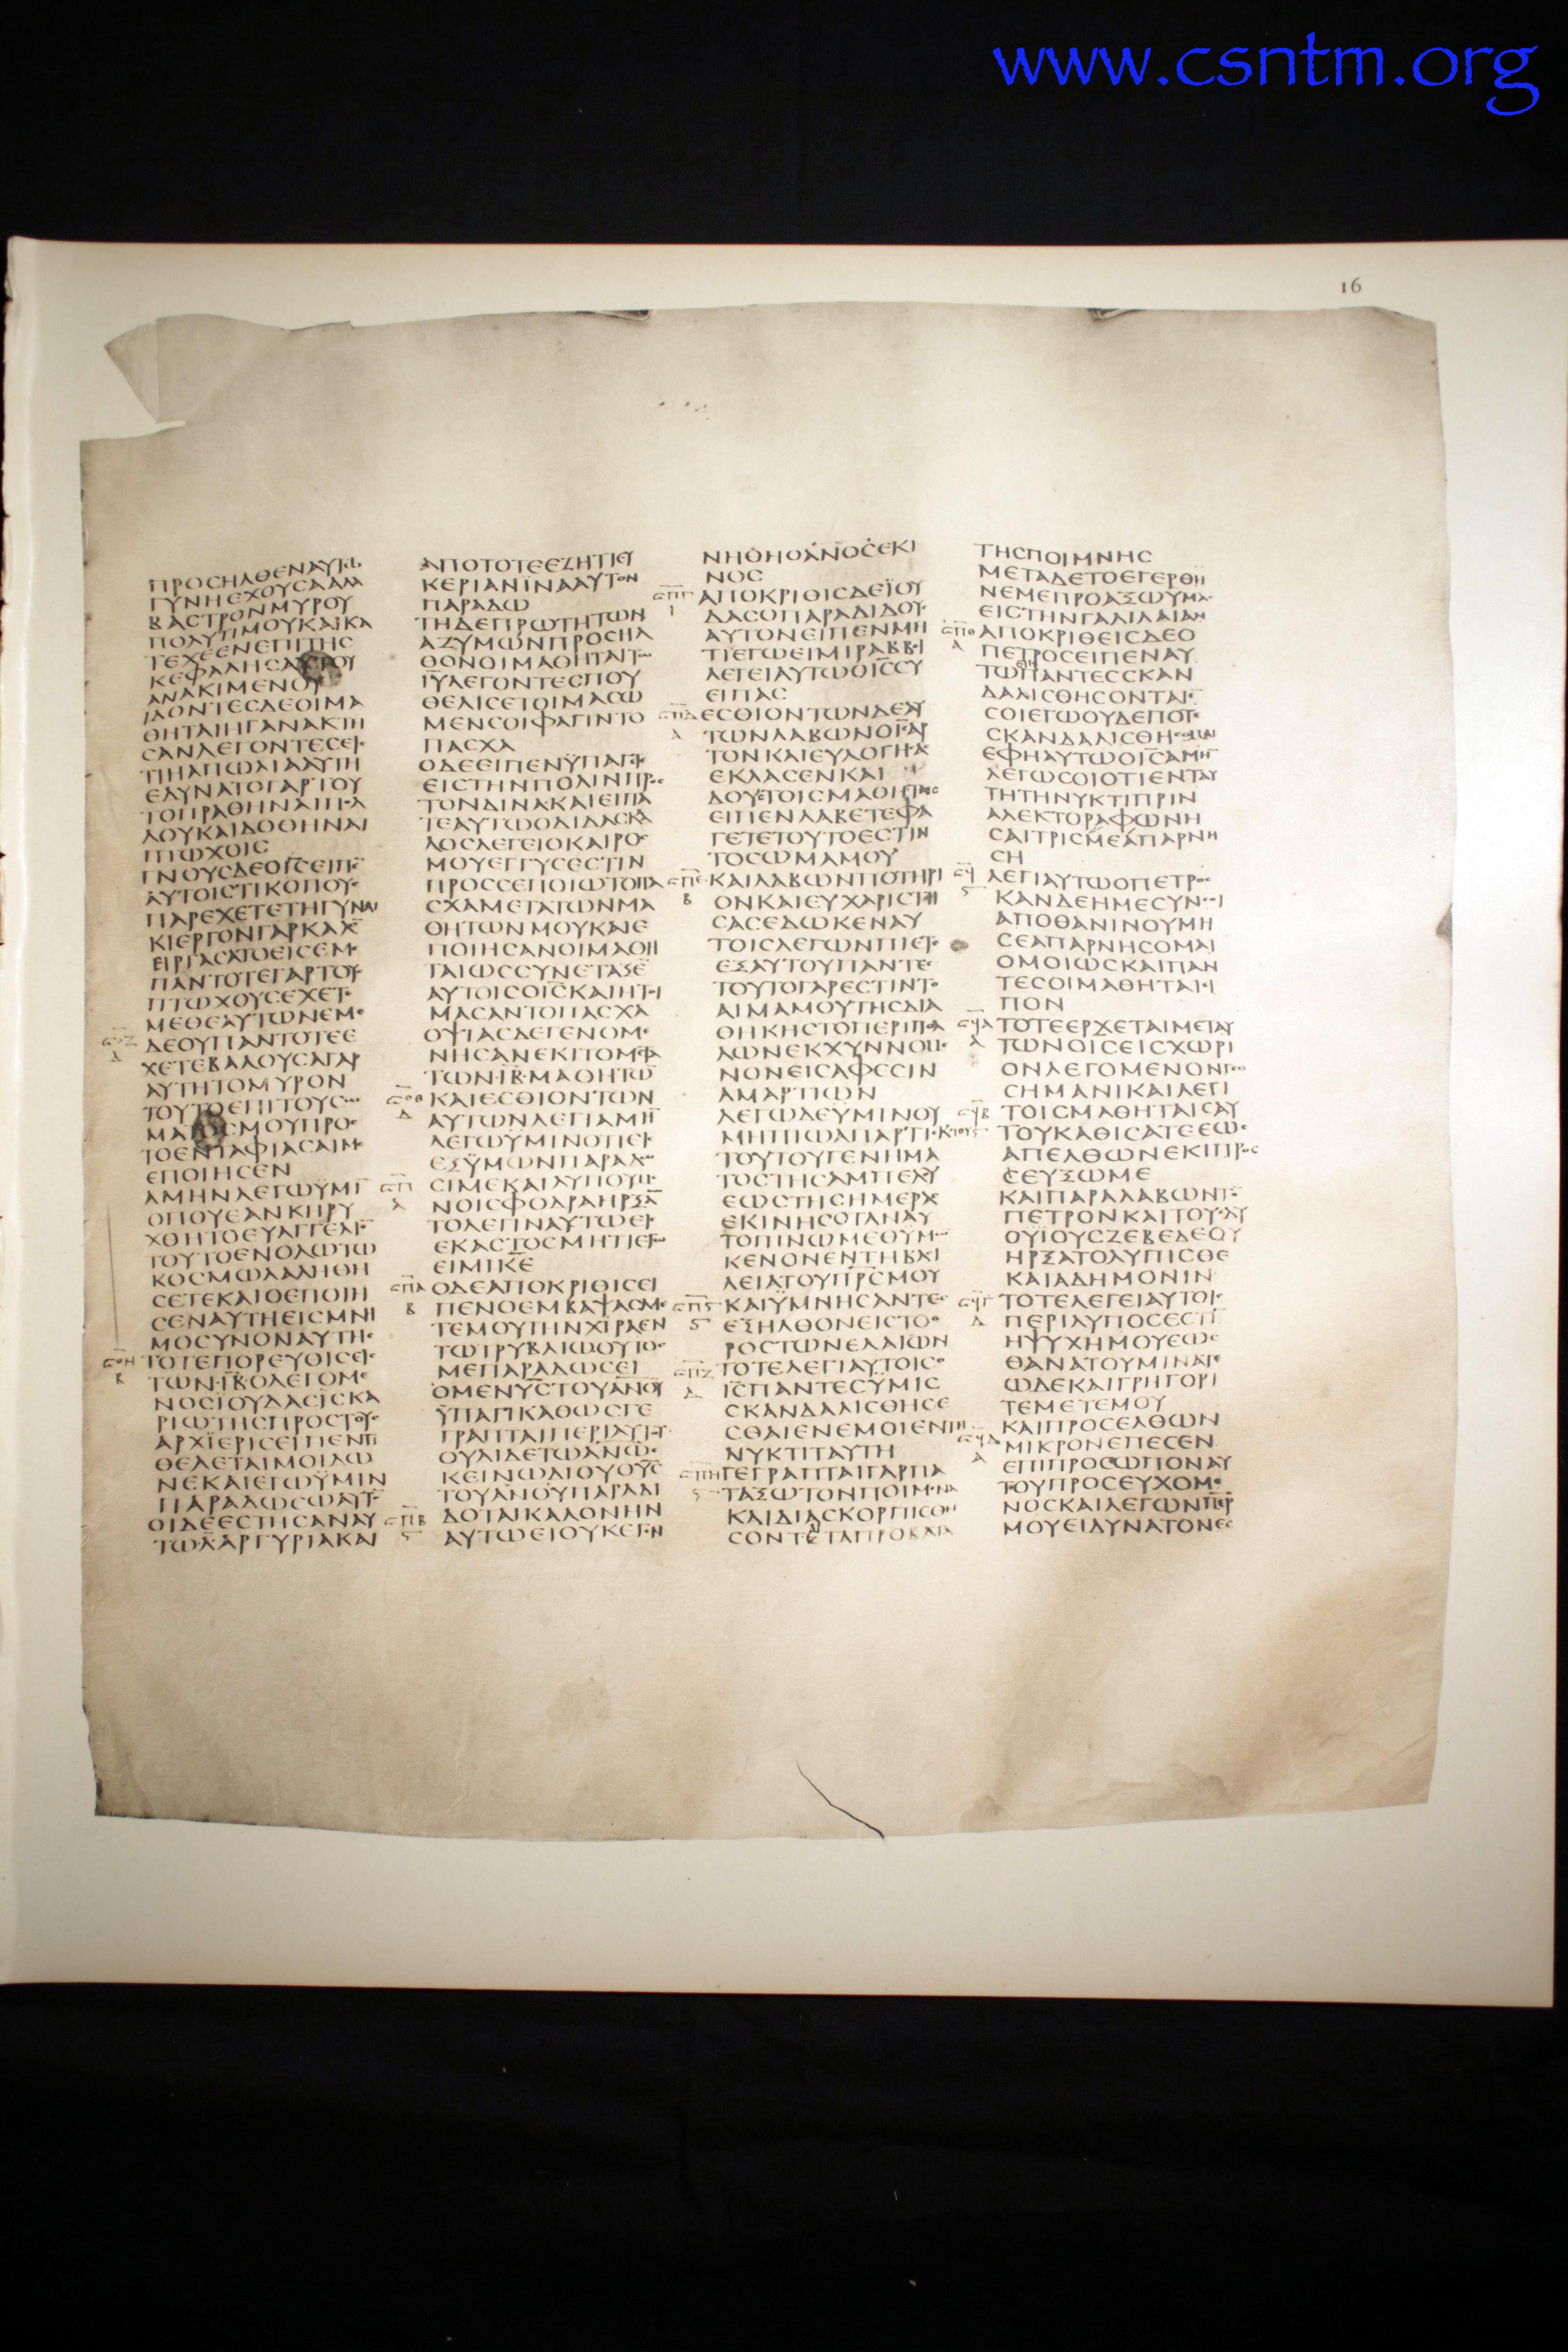 www.csntm.org
16
ΠΡΟCΗΛΘΕΝΑΥΤΩ
ΓΥΝΗΕΧΟΥCΑΑΛΑ
ΒΑCΤΡΟΝΜΥΡΟΥ
ΠΟΛΥΤΙΜΟΥΚΑΙΚΑ
ΤΕΧΕΕΝΕΠΙΤΗC
ΚΕΦΑΛΗCΑΥΤΟΥ
ΑΝΑΚΙΜΕΝΟΥ
ΙΔΟΝΤΕCΔΕΟΙΜΑ
ΘΗΤΑΙΗΓΑΝΑΚΤΗ
CΑΝΛΕΓΟΝΤΕCΕΙC
ΤΙΗΑΠΩΛΙΑΑΥΤΗ
ΕΔΥΝΑΤΟΓΑΡΤΟΥ
ΤΟΠΡΑΘΗΝΑΙΠΟΛ
ΛΟΥΚΑΙΔΟΘΗΝΑΙ
ΠΤΩΧΟΙC
ΓΝΟΥCΔΕΟΙCΕΙΠΕ
ΑΥΤΟΙCΤΙΚΟΠΟΥC
ΠΑΡΕΧΕΤΕΤΗΓΥΝΑΙ
ΚΙΕΡΓΟΝΓΑΡΚΑΛΟ
ΕΙΡΓΑCΑΤΟΕΙCΕΜΕ
ΠΑΝΤΟΤΕΓΑΡΤΟΥC
ΠΤΩΧΟΥCΕΧΕΤΕ
ΜΕΘΕΑΥΤΩΝΕΜΕ
ΔΕΟΥΠΑΝΤΟΤΕΕ
ΧΕΤΕΒΑΛΟΥCΑΓΑΡ
ΑΥΤΗΤΟΜΥΡΟΝ
ΤΟΥΤΟΕΠΙΤΟΥCΩ
ΜΑΤΟCΜΟΥΠΡΟC
ΤΟΕΝΤΑΦΙΑCΑΙΜΕ
ΕΠΟΙΗCΕΝ
ΑΜΗΝΛΕΓΩΫΜΙ
ΟΠΟΥΕΑΝΚΗΡΥ
ΧΘΗΤΟΕΥΑΓΓΕΛΙΟ
ΤΟΥΤΟΕΝΟΛΩΤΩ
ΚΟCΜΩΛΑΛΗΘΗ
CΕΤΕΚΑΙΟΕΠΟΙΗ
CΕΝΑΥΤΗΕΙCΜΝΗ
ΜΟCΥΝΟΝΑΥΤΗC
ΤΟΤΕΠΟΡΕΥΘΙCΕΙC
ΤΩΝ·ΙΒ·ΟΛΕΓΟΜΕ
ΝΟCΙΟΥΔΑCΙCΚΑ
ΡΙΩΤΗCΠΡΟCΤΟΥC
ΑΡΧΙΕΡΙCΕΙΠΕΝΤΙ
ΘΕΛΕΤΑΙΜΟΙΔΩ
ΝΕΚΑΙΕΓΩΫΜΙΝ
ΠΑΡΑΔΩCΩΑΥΤΟ
ΟΙΔΕΕCΤΗCΑΝΑΥ
ΤΩΛΑΡΓΥΡΙΑΚΑΙ
ΑΠΟΤΟΤΕΕΖΗΤΙΕΥ
ΚΕΡΙΑΝΪΝΑΑΥΤΟΝ
ΠΑΡΑΔΩ
ΤΗΔΕΠΡΩΤΗΤΩΝ
ΑΖΥΜΩΝΠΡΟCΗΛ
ΘΟΝΟΙΜΑΘΗΤΑΙΤΩ
ΙΥΛΕΓΟΝΤΕCΠΟΥ
ΘΕΛΙCΕΤΟΙΜΑCΩ
ΜΕΝCΟΙΦΑΓΙΝΤΟ
ΠΑCΧΑ
ΟΔΕΕΙΠΕΝΫΠΑΓΕΤΕ
ΕΙCΤΗΝΠΟΛΙΝΠΡΟC
ΤΟΝΔΙΝΑΚΑΙΕΙΠΑ
ΤΕΑΥΤΩΟΔΙΔΑCΚΑ
ΛΟCΛΕΓΕΙΟΚΑΙΡΟC
ΜΟΥΕΓΓΥCΕCΤΙΝ
ΠΡΟCCΕΠΟΙΩΤΟΠΑ
CΧΑΜΕΤΑΤΩΝΜΑ
ΘΗΤΩΝΜΟΥΚΑΙΕ
ΠΟΙΗCΑΝΟΙΜΑΘΗ
ΤΑΙΩCCΥΝΕΤΑΞΕ
ΑΥΤΟΙCΟΙCΚΑΙΗΤΟΙ
ΜΑCΑΝΤΟΠΑCΧΑ
ΟΨΙΑCΔΕΓΕΝΟΜΕ
ΝΗCΑΝΕΚΙΤΟΜΕΤΑ
ΤΩΝ·ΙΒ·ΜΑΘΗΤΩ
ΚΑΙΕCΘΙΟΝΤΩΝ
ΑΥΤΩΝΛΕΓΙΑΜΗ
ΛΕΓΩΥΜΙΝΟΤΙΕΙC
ΕΞΫΜΩΝΠΑΡΑΔΩ
CΙΜΕΚΑΙΛΥΠΟΥΜΕ
ΝΟΙCΦΟΔΡΑΗΡΞΑ
ΤΟΛΕΓΙΝΑΥΤΩΕΙC
ΕΚΑCΤΟCΜΗΤΙΕΓΩ
ΕΙΜΙΚΕ
ΟΔΕΑΠΟΚΡΙΘΙCΕΙ
ΠΕΝΟΕΜΒΑΨΑCΜΕ
ΤΕΜΟΥΤΗΝΧΙΡΑΕΝ
ΤΩΤΡΥΒΛΙΩΟΥΤΟC
ΜΕΠΑΡΑΔΩCΕΙ
ΟΜΕΝΥCΤΟΥΑΝΟΥ
ΫΠΑΓΙΚΑΘΩCΓΕ
ΓΡΑΠΤΑΙΠΕΡΙΑΥΤΟΥ
ΟΥΑΙΔΕΤΩΑΝΩ
ΚΕΙΝΩΔΙΟΥΟΥC
ΤΟΥΑΝΟΥΠΑΡΑΔΙ
ΔΟΤΑΙΚΑΛΟΝΗΝ
ΑΥΤΩΕΙΟΥΚΕΓΕΝ
ΝΗΘΗΟΑΝΟCΕΚΙ
ΝΟC
ΑΠΟΚΡΙΘΙCΔΕΪΟΥ
ΔΑCΟΠΑΡΑΔΙΔΟΥC
ΑΥΤΟΝΕΙΠΕΝΜΗ
ΤΙΕΓΩΕΙΜΙΡΑΒΒΕΙ
ΛΕΓΕΙΑΥΤΩΟΙCCΥ
ΕΙΠΑC
ΕCΘΙΟΝΤΩΝΔΕΑΥ
ΤΩΝΛΑΒΩΝΟΙCΑΡ
ΤΟΝΚΑΙΕΥΛΟΓΗCΑC
ΕΚΛΑCΕΝΚΑΙ
ΔΟΥCΤΟΙCΜΑΘΗΤΑΙC
ΕΙΠΕΝΛΑΒΕΤΕΦΑ
ΓΕΤΕΤΟΥΤΟΕCΤΙΝ
ΤΟCΩΜΑΜΟΥ
ΚΑΙΛΑΒΩΝΠΟΤΗΡΙ
ΟΝΚΑΙΕΥΧΑΡΙCΤΗ
CΑCΕΔΩΚΕΝΑΥ
ΤΟΙCΛΕΓΩΝΠΙΕΤΕ
ΕΞΑΥΤΟΥΠΑΝΤΕC
ΤΟΥΤΟΓΑΡΕCΤΙΝΤΟ
ΑΙΜΑΜΟΥΤΗCΔΙΑ
ΘΗΚΗCΤΟΠΕΡΙΠΟΛ
ΛΩΝΕΚΧΥΝΝΟΜΕ
ΝΟΝΕΙCΑΦΕCΙΝ
ΑΜΑΡΤΙΩΝ
ΛΕΓΩΔΕΫΜΙΝΟΥ
ΜΗΠΙΩΑΠΑΡΤΙ·ΕΚΤΟΥ
ΤΟΥΤΟΥΓΕΝΗΜΑ
ΤΟCΤΗCΑΜΠΕΛΟΥ
ΕΩCΤΗCΗΜΕΡΑC
ΕΚΙΝΗCΟΤΑΝΑΥ
ΤΟΠΙΝΩΜΕΘΥΜΩ
ΚΕΝΟΝΕΝΤΗΒΑCΙ
ΛΕΙΑΤΟΥΠΡCΜΟΥ
ΚΑΙΫΜΝΗCΑΝΤΕC
ΕΞΗΛΘΟΝΕΙCΤΟΟ
ΡΟCΤΩΝΕΛΑΙΩΝ
ΤΟΤΕΛΕΓΙΑΥΤΟΙCΟ
ΙCΠΑΝΤΕCΫΜΙC
CΚΑΝΔΑΛΙCΘΗCΕ
CΘΑΙΕΝΕΜΟΙΕΝΤΗ
ΝΥΚΤΙΤΑΥΤΗ
ΓΕΓΡΑΠΤΑΙΓΑΡΠΑ
ΤΑΞΩΤΟΝΠΟΙΜΕΝΑ
ΚΑΙΔΙΑCΚΟΡΠΙCΘΗ
CΟΝΤΕΤΑΠΡΟΒΑΤΑ
ΤΗCΠΟΙΜΝΗC
ΜΕΤΑΔΕΤΟΕΓΕΡΘΗ
ΝΕΜΕΠΡΟΑΞΩΥΜΑC
ΕΙCΤΗΝΓΑΛΙΛΑΙΑΝ
ΑΠΟΚΡΙΘΕΙCΔΕΟ
ΠΕΤΡΟCΕΙΠΕΝΑΥ
ΤΩΠΑΝΤΕCCΚΑΝ
ΔΑΛΙCΘΗCΟΝΤΑΙΕ
CΟΙΕΓΩΟΥΔΕΠΟΤΕ
CΚΑΝΔΑΛΙCΘΗCΟΜΑΙ
ΕΦΗΑΥΤΩΟΙCΑΜΗ
ΛΕΓΩCΟΙΟΤΙΕΝΤΑΥ
ΤΗΤΗΝΥΚΤΙΠΡΙΝ
ΑΛΕΚΤΟΡΑΦΩΝΗ
CΑΙΤΡΙCΜΕΑΠΑΡΝΗ
CΗ
ΛΕΓΙΑΥΤΩΟΠΕΤΡΟC
ΚΑΝΔΕΗΜΕCΥΝCΟΙ
ΑΠΟΘΑΝΙΝΟΥΜΗ
CΕΑΠΑΡΝΗCΟΜΑΙ
ΟΜΟΙΩCΚΑΙΠΑΝ
ΤΕCΟΙΜΑΘΗΤΑΙΕΙ
ΠΟΝ
ΤΟΤΕΕΡΧΕΤΑΙΜΕΤΑΥ
ΤΩΝΟΙCΕΙCΧΩΡΙ
ΟΝΛΕΓΟΜΕΝΟΝΓΕΘ
CΗΜΑΝΙΚΑΙΛΕΓΙ
ΤΟΙCΜΑΘΗΤΑΙCΑΥ
ΤΟΥΚΑΘΙCΑΤΕΕΩC
ΑΠΕΛΘΩΝΕΚΙΠΡΟC
CΕΥΞΩΜΕ
ΚΑΙΠΑΡΑΛΑΒΩΝΤΟ
ΠΕΤΡΟΝΚΑΙΤΟΥCΔΥ
ΟΫΙΟΥCΖΕΒΕΔΕΟΥ
ΗΡΞΑΤΟΛΥΠΙCΘΕ
ΚΑΙΑΔΗΜΟΝΙΝ
ΤΟΤΕΛΕΓΕΙΑΥΤΟΙC
ΠΕΡΙΛΥΠΟCΕCΤΙ
ΗΨΥΧΗΜΟΥΕΩC
ΘΑΝΑΤΟΥΜΙΝΑΤΕ
ΩΔΕΚΑΙΓΡΗΓΟΡΙ
ΤΕΜΕΤΕΜΟΥ
ΚΑΙΠΡΟCΕΛΘΩΝ
ΜΙΚΡΟΝΕΠΕCΕΝ
ΕΠΙΠΡΟCΩΠΟΝΑΥ
ΤΟΥΠΡΟCΕΥΧΟΜΕ
ΝΟCΚΑΙΛΕΓΩΝΠΕΡ
ΜΟΥΕΙΔΥΝΑΤΟΝΕC